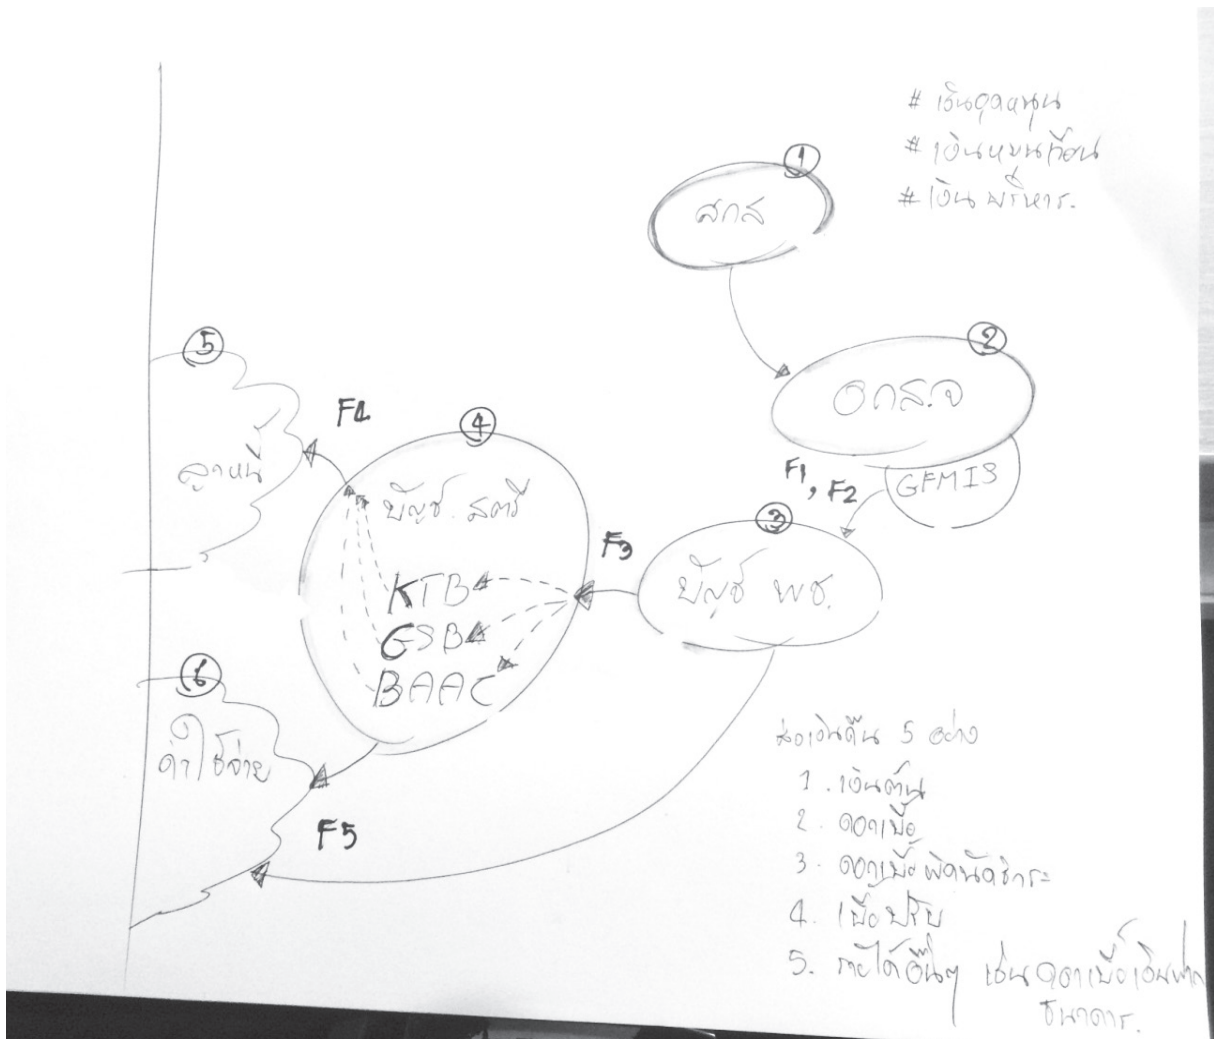 # เงินอุดหนุน
# เงินหมุนเวียน
# เงินบริหาร.
1
สกส
2
อกส.จ
GFMIS
F1, F2
3
บัญชี พช.
F3
4
บัญชี สตรี
KTB
GSB
BAAC
F4
5
ลูกหนี้
6
ค่าใช้จ่าย
F5
ส่งเงินคืน 5 อย่าง
1. เงินต้น
2. ดอกเบี้ย
3. ดอกเบี้ยผิดนัดชำระ
4. เบี้ยปรับ
5. รายได้อื่นๆ เช่น ดอกเบี้ยเงินฝาก
ธนาคาร.